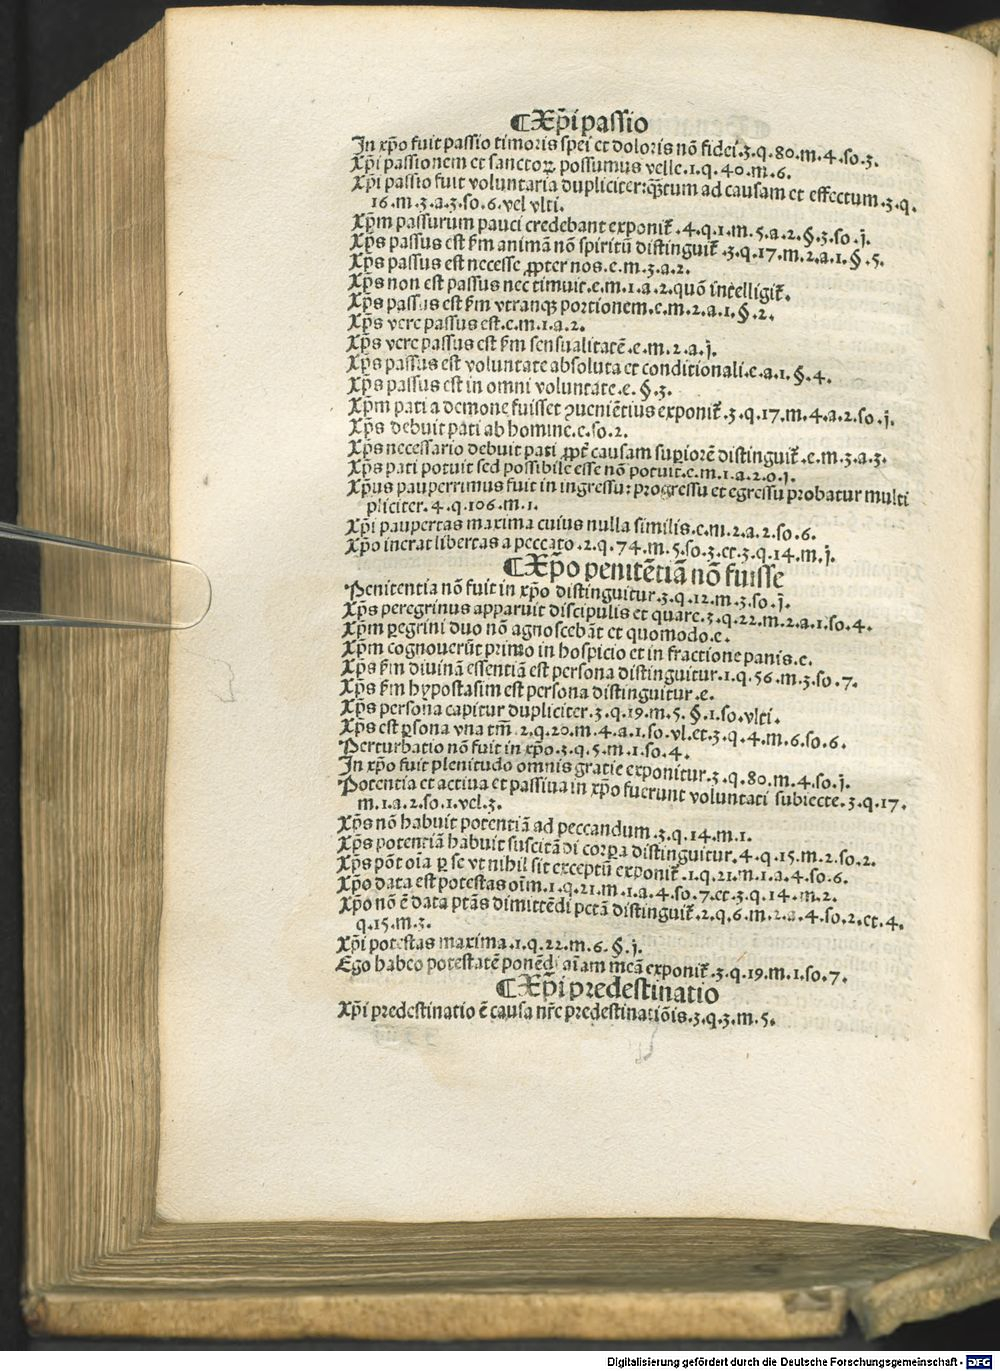 ¶Xp̄i passio
In xp̄o fuit passio timoris spei et doloris nō fidei.3.q.80.m.4.so.3.
Xp̄i passionem et sanctoꝝ possumus velle.1.q.40.m.6.
Xp̄i passio fuit voluntaria dupliciter:qꝫtum ad causam et effectum.3.q.
16.m.3.a.3.so.6.vel vlti.
Xp̄m passurum pauci credebant exponit᷑.4.q.1.m.5.a.2.§.3.so.j.
Xp̄s passus est ẜm animā nō spiritū distinguit᷑.3.q.17.m.2.a.1.§.5.
Xp̄s passus est necesse ꝓpter nos.e.m.3.a.2.
Xp̄s non est passus nec timuit.e.m.1.a.2.quō intelligit᷑.
Xp̄s passus est ẜm vtranqꝫ portionem.e.m.2.a.1.§.2.
Xp̄s vere passus est.e.m.1.a.2.
Xp̄s vere passus est ẜm sensualitatē.e.m.2.a.j.
Xp̄s passus est voluntate absoluta et conditionali.e.a.1.§.4.
Xp̄s passus est in omni voluntate.e.§.3.
Xp̄m pati a demone fuisset ꝯueniētius exponit᷑.3.q.17.m.4.a.2.so.j.
Xp̄s debuit pati ab homine.e.so.2.
Xp̄s necessario debuit pati ꝓpt᷑ causam suꝑiorē distinguit᷑.e.m.3.a.3.
Xp̄s pati potuit sed possibile esse nō potuit.e.m.1.a.2.o.j.
Xp̄us pauperrimus fuit in ingressu:progressu et egressu probatur multi
pliciter.4.q.106.m.1.
Xp̄i paupertas maxima cuius nulla similis.e.m.2.a.2.so.6.
Xp̄o inerat libertas a peccato.2.q.74.m.5.so.3.et.3.q.14.m.j.
¶Xp̄o penitētiā nō fuisse
Penitentia nō fuit in xp̄o distinguitur.3.q.12.m.3.so.j.
Xp̄s peregrinus apparuit discipulis et quare.3.q.22.m.2.a.1.so.4.
Xp̄m ꝑegrini duo nō agnoscebāt et quomodo.e.
Xp̄m cognouerūt primo in hospicio et in fractione panis.e.
Xp̄s ẜm diuinā essentiā est persona distinguitur.1.q.56.m.3.so.7.
Xp̄s ẜm hypostasim est persona distinguitur.e.
Xp̄s persona capitur dupliciter.3.q.19.m.5.§.1.so.vlti.
Xp̄s est ꝑsona vna tm̄.2.q.20.m.4.a.1.so.vl.et.3.q.4.m.6.so.6.
Perturbatio nō fuit in xp̄o.3.q.5.m.1.so.4.
In xp̄o fuit plenitudo omnis gratie exponitur.3.q.80.m.4.so.j.
Potentia et actiua et passiua in xp̄o fuerunt voluntati subiecte.3.q.17.
m.1.a.2.so.1.vel.3.
Xp̄s nō habuit potentiā ad peccandum.3.q.14.m.1.
Xp̄s potentiā habuit suscitādi corꝑa distinguitur.4.q.15.m.2.so.2.
Xp̄s pōt oīa ꝑ se vt nihil sit exceptū exponit᷑.1.q.21.m.1.a.4.so.6.
Xp̄o data est potestas oīm.1.q.21.m.1.a.4.so.7.et.3.q.14.m.2.
Xp̄o nō ē data ptās dimittēdi pctā distinguit᷑.2.q.6.m.2.a.4.so.2.et.4.
q.15.m.3.
Xp̄i potestas maxima.1.q.22.m.6.§.j.
Ego habeo potestatē ponēdi aīam meā exponit᷑.3.q.19.m.1.so.7.
¶Xp̄i predestinatio
Xp̄i predestinatio ē causa nr̄e predestinatiōis.3.q.3.m.5.
Digitalisierung gefördert durch die Deutsche Forschungsgemeinschaft - DFG